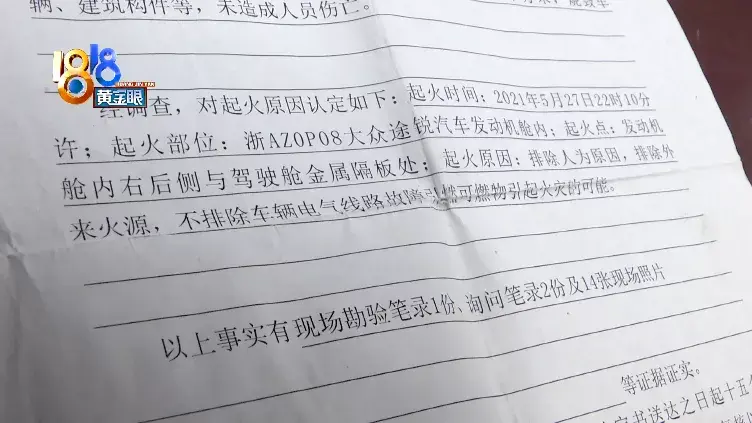 辆、建筑构件等，未造成人员伤亡。
1818
黄金眼
经调查，对起火原因认定如下：起火时间：2021年5月27日22时10分
许；起火部位：浙AZ0P08大众途锐汽车发动机舱内；起火点：发动机
舱内右后侧与驾驶舱金属隔板处；起火原因：排除人为原因，排除外
来火源，不排除车辆电气线路故障引燃可燃物引起火灾的可能。
以上事实有现场勘验笔录1份、询问笔录2份及14张现场照片
等证据证实。
书送达之日起十五